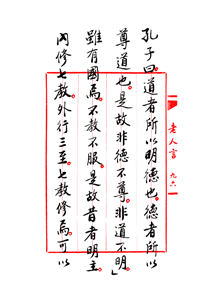 孔子曰道者所以明德也德者所以
尊道也是故非德不尊非道不明」
雖有國焉不教不服是故昔者明主
内修七教外行三至七教修焉可以
老人言 九六